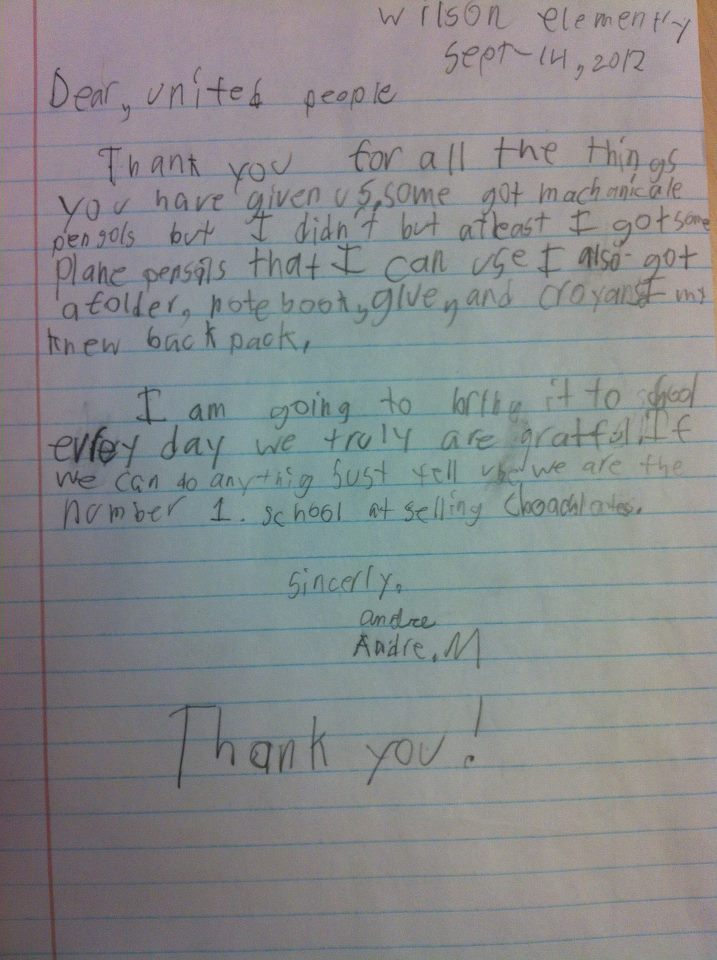 Wilson elementry
Sept-14, 2012
Dear, united people
Thank you for all the things
you have given us, some got machanicale
pensols but I didn't but atleast I got some
plane pensils that I can use I also got
a folder, note book, glue, and croyans I my
knew back pack,
I am going to bring it to school
evrey day we truly are gratful. If
we can do anythig just tell us we are the
number 1. school at selling
Sincerly,
andre
Andre. M
Thank you!